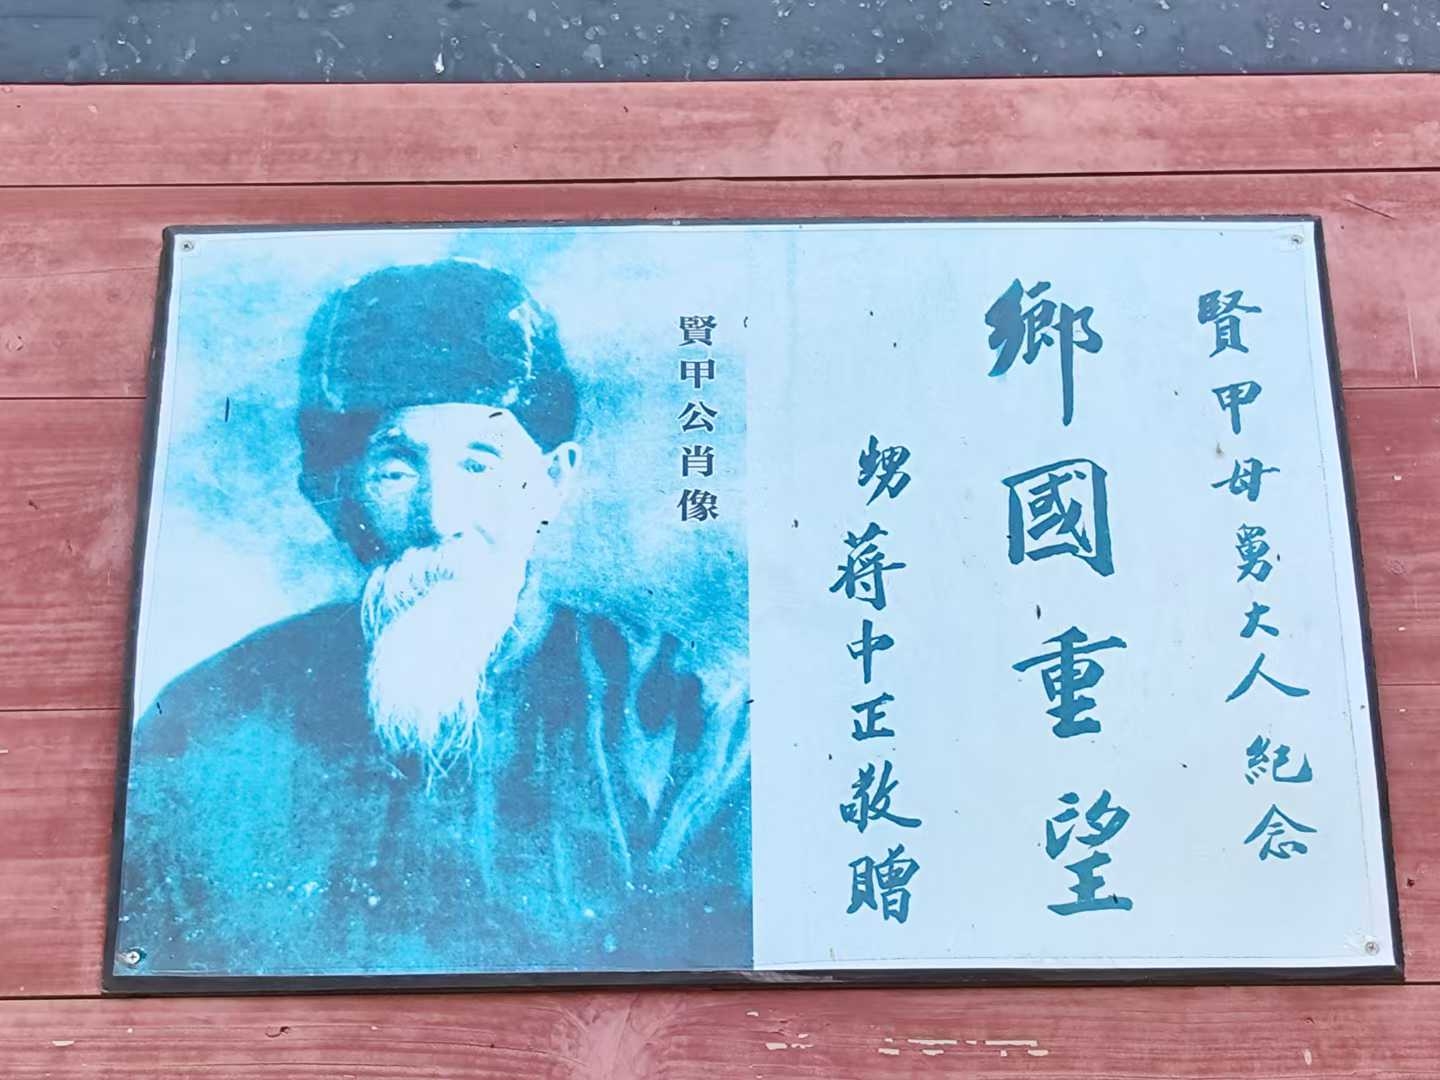 賢甲母舅大人紀念
鄉國重望
甥蔣中正敬贈
賢甲公肖像